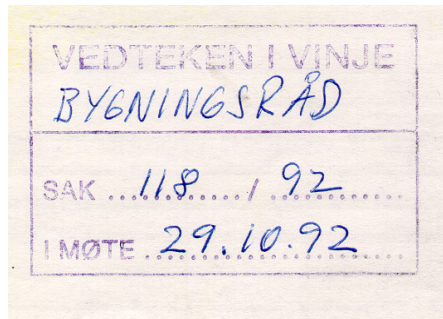 VEDTEKEN I VINJE
BYGNINGSRÅD
SAK ...118........ / ..92............
I MØTE ..29.10.92........